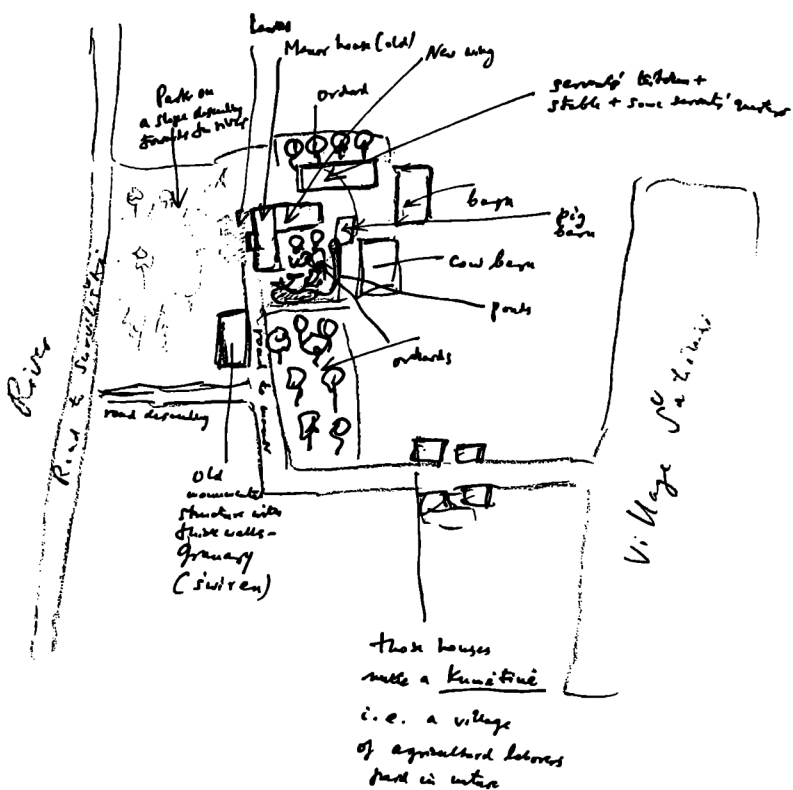 Lawns
Manor house (old)
New wing
orchard
servants' kitchen +
stable + some servants' quarters
Park on
a slope descending
towards the river
barn
pig
barn
cow barn
ponds
orchards
River
Road to
road to manor
road descending
Village
Old
structure with
thick walls-
Granary
(świren)
those houses
make a Kumetinė
i.e. a village
of agricultural laborers
paid in nature